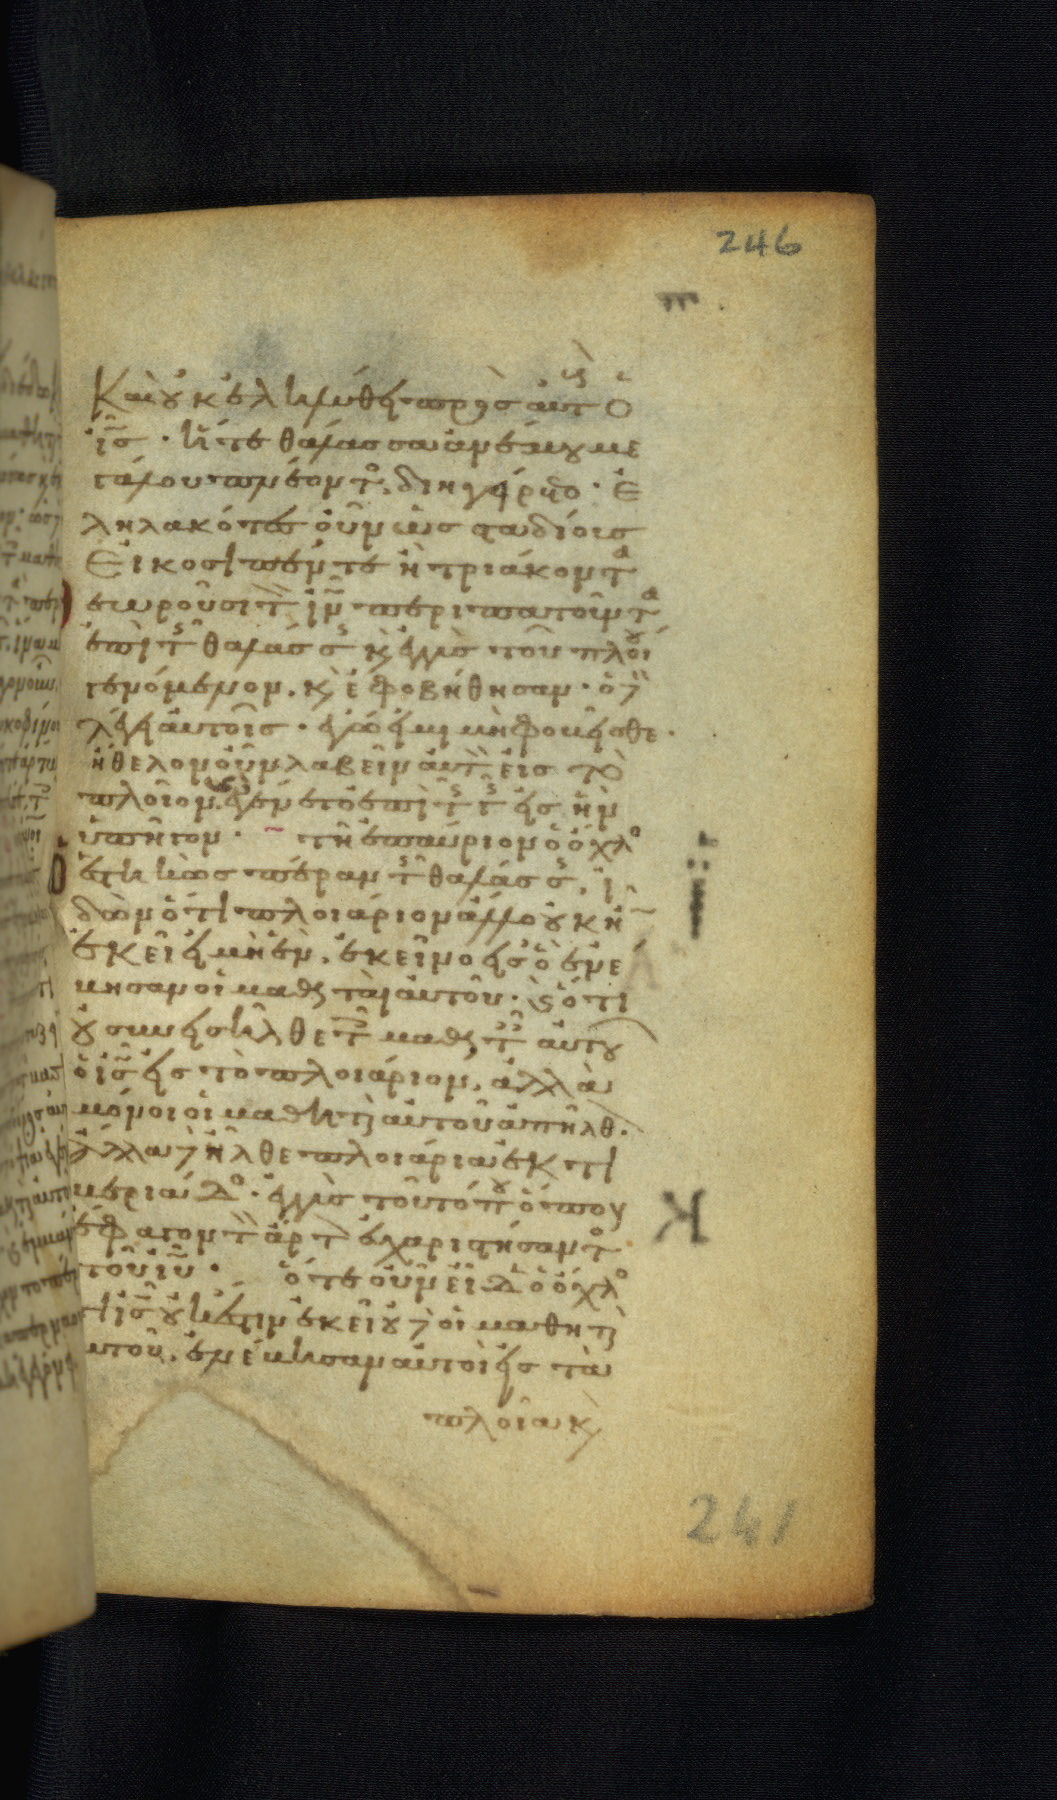 246
Καὶ οὐκ ἐληλύθει πρὸς αὐτοὺς ὁ
ἰς̄ · ἥτε θάλασσα ἀνέμου με
γάλου πνέοντος διηγείρετο · Ἐ
ληλακότες οὖν ὡς σταδίους
Εἴκοσι πέντε ἢ τριάκοντα
θεωροῦσι τὸν ἰν̄ περιπατοῦντα
ἐπὶ τῆς θαλάσσης κ̀ ἐγγὺς τοῦ πλοίου
γενόμενον . κ̀ ἐφοβήθησαν · ὁ δὲ
λέγει αὐτοῖς · ἐγώ εἰμι μὴ φοβεῖσθε ·
ἤθελον οὖν λαβεῖν αὐτὸν εἰς τὸ
πλοῖον
ὑπῆγον · τῇ ἐπαύριον ὁ ὄχλος
ὁ ἑστηκὼς πέραν τῆς θαλάσσης . ἰ
δὼν ὅτι πλοιάριον ἄλλο οὐκ ἦν
ἐκεῖ εἰ μὴ ἓν . ἐκεῖνο εἰς ὃ ἐνέ
βησαν οἱ μαθηταὶ αὐτοῦ · κ̀ ὅτι
οὐ συνεισῆλθε τοῖς μαθηταῖς αὐτοῦ
ὁ ἰς̄ εἰς τὸ πλοιάριον . ἀλλὰ
μόνοι οἱ μαθηταὶ αὐτοῦ ἀπῆλθον .
ἄλλα δὲ ἦλθε πλοιάρια ἐκ τι
βεριάδος · ἐγγὺς τοῦ τόπου ὅπου
ἔφαγον τὸν ἄρτον εὐχαριστήσαντος
τοῦ ἰῡ · ὅτε οὖν εἶδεν ὁ ὄχλος
ὅτι ἰς̄ οὐκ ἔστιν ἐκεῖ οὐδὲ οἱ μαθηταὶ
αὐτοῦ . ἐνέβησαν αὐτοὶ εἰς τὰ
πλοῖα κ̀
241